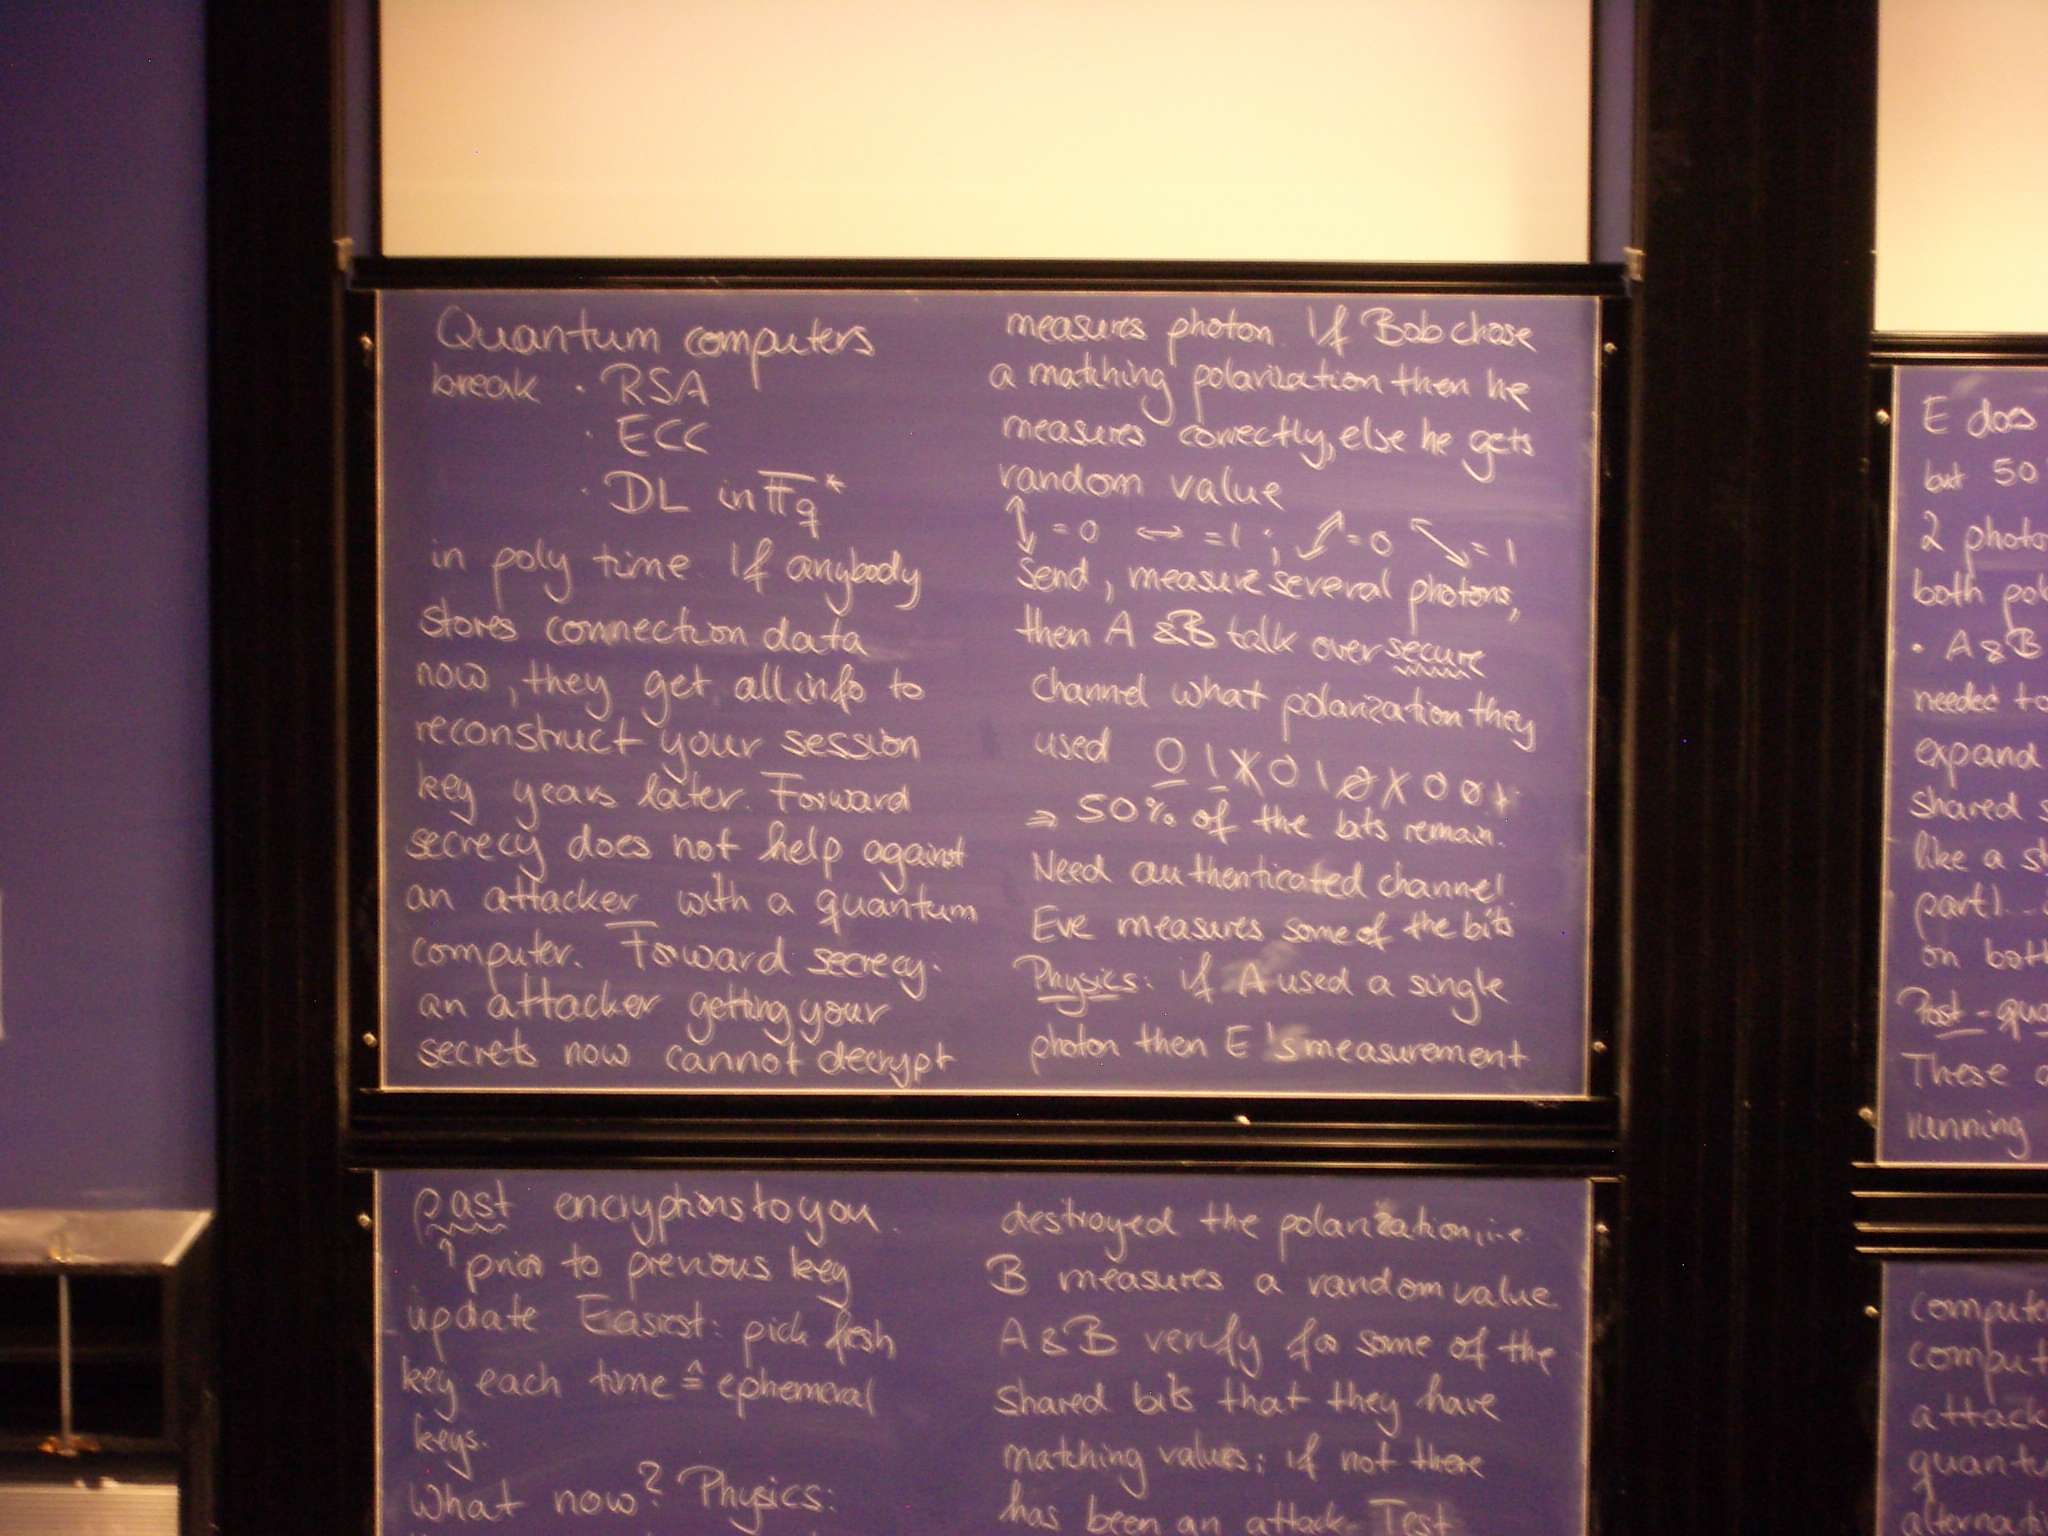 Quantum computers
break · RSA
· ECC
· DL in F_q^*
in poly time. If anybody
stores connection data
now, they get all info to
reconstruct your session
key years later. Forward
secrecy does not help against
an attacker with a quantum
computer. Forward secrecy:
an attacker getting your
secrets now cannot decrypt
past encryptions to you.
↑ prior to previous key
update Easiest: pick fresh
key each time ≙ ephemeral
keys.
What now? Physics:
measures photon. If Bob chose
a matching polarization then he
measures correctly, else he gets
random value
↕ = 0 ↔ = 1 ; ⤢ = 0 ⤡ = 1
Send, measure several photons,
then A & B talk over secure
channel what polarization they
used 0 1 X 0 1
⇒ 50% of the bits remain.
Need authenticated channel.
Eve measures some of the bits
Physics: if A used a single
photon then E's measurement
destroyed the polarization, i.e.
B measures a random value.
A & B verify for some of the
shared bits that they have
matching values; if not there
has been an attack. Test
E does
but 50
2 photo
both pol
· A & B
needed to
expand
shared s
like a st
part)...
on both
Post-qua
These
running
compute
comput
attack
quantu
alternati